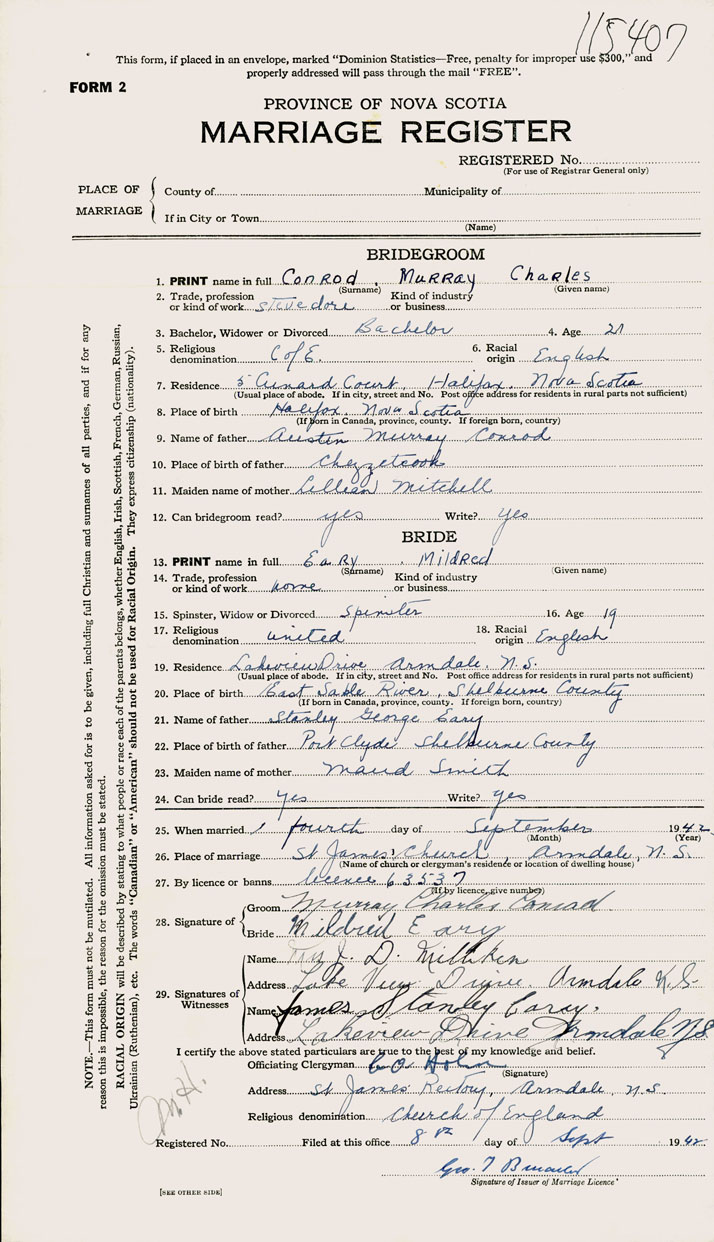 115407
This form, if placed in an envelope, marked "Dominion Statistics—Free, penalty for improper use $300," and
properly addressed will pass through the mail "FREE".
FORM 2
PROVINCE OF NOVA SCOTIA
MARRIAGE REGISTER
REGISTERED No.
(For use of Registrar General only)
PLACE OF MARRIAGE
County of Municipality of
If in City or Town
(Name)
BRIDEGROOM
1. PRINT name in full Conrod, Murray Charles
(Surname) (Given name)
2. Trade, profession or kind of work stevedore Kind of industry or business
3. Bachelor, Widower or Divorced Bachelor 4. Age 21
5. Religious denomination C of E. 6. Racial origin English
7. Residence 5 Cunard Court, Halifax, Nova Scotia
(Usual place of abode. If in city, street and No. Post office address for residents in rural parts not sufficient)
8. Place of birth Halifax, Nova Scotia
(If born in Canada, province, county. If foreign born, country)
9. Name of father Austin Murray Conrod
10. Place of birth of father Chezzetcook
11. Maiden name of mother Lillian Mitchell
12. Can bridegroom read? yes Write? yes
BRIDE
13. PRINT name in full Eary, Mildred
(Surname) (Given name)
14. Trade, profession or kind of work home Kind of industry or business
15. Spinster, Widow or Divorced Spinster 16. Age 19
17. Religious denomination united 18. Racial origin English
19. Residence Lakeview Drive Armdale, N.S.
(Usual place of abode. If in city, street and No. Post office address for residents in rural parts not sufficient)
20. Place of birth East Sable River, Shelburne County
(If born in Canada, province, county. If foreign born, country)
21. Name of father Stanley George Eary
22. Place of birth of father Port Clyde Shelburne County
23. Maiden name of mother Maud Smith
24. Can bride read? yes Write? yes
25. When married fourth day of September 1942
(Month) (Year)
26. Place of marriage St James' Church, Armdale, N.S.
(Name of church or clergyman's residence or location of dwelling house)
27. By licence or banns licence 63537
(If by licence, give number)
28. Signature of
Groom Murray Charles Conrad
Bride Mildred Eary
29. Signatures of Witnesses
Name J. D. Milliken
Address Lake View Drive. Armdale N.S.
Name James Stanley
Address Lakeview Drive Armdale N.S.
I certify the above stated particulars are true to the best of my knowledge and belief.
Officiating Clergyman
(Signature)
Address St James' Rectory, Armdale, N.S.
Religious denomination Church of England
Registered No. Filed at this office 8 day of Sept 1942
Geo. T
Signature of Issuer of Marriage Licence
[SEE OTHER SIDE]
NOTE.—This form must not be mutilated. All information asked for is to be given, including full Christian and surnames of all parties, and if for any
reason this is impossible, the reason for the omission must be stated.
RACIAL ORIGIN will be described by stating to what people or race each of the parents belongs, whether English, Irish, Scottish, French, German, Russian,
Ukrainian (Ruthenian), etc. The words "Canadian" or "American" should not be used for Racial Origin. They express citizenship (nationality).